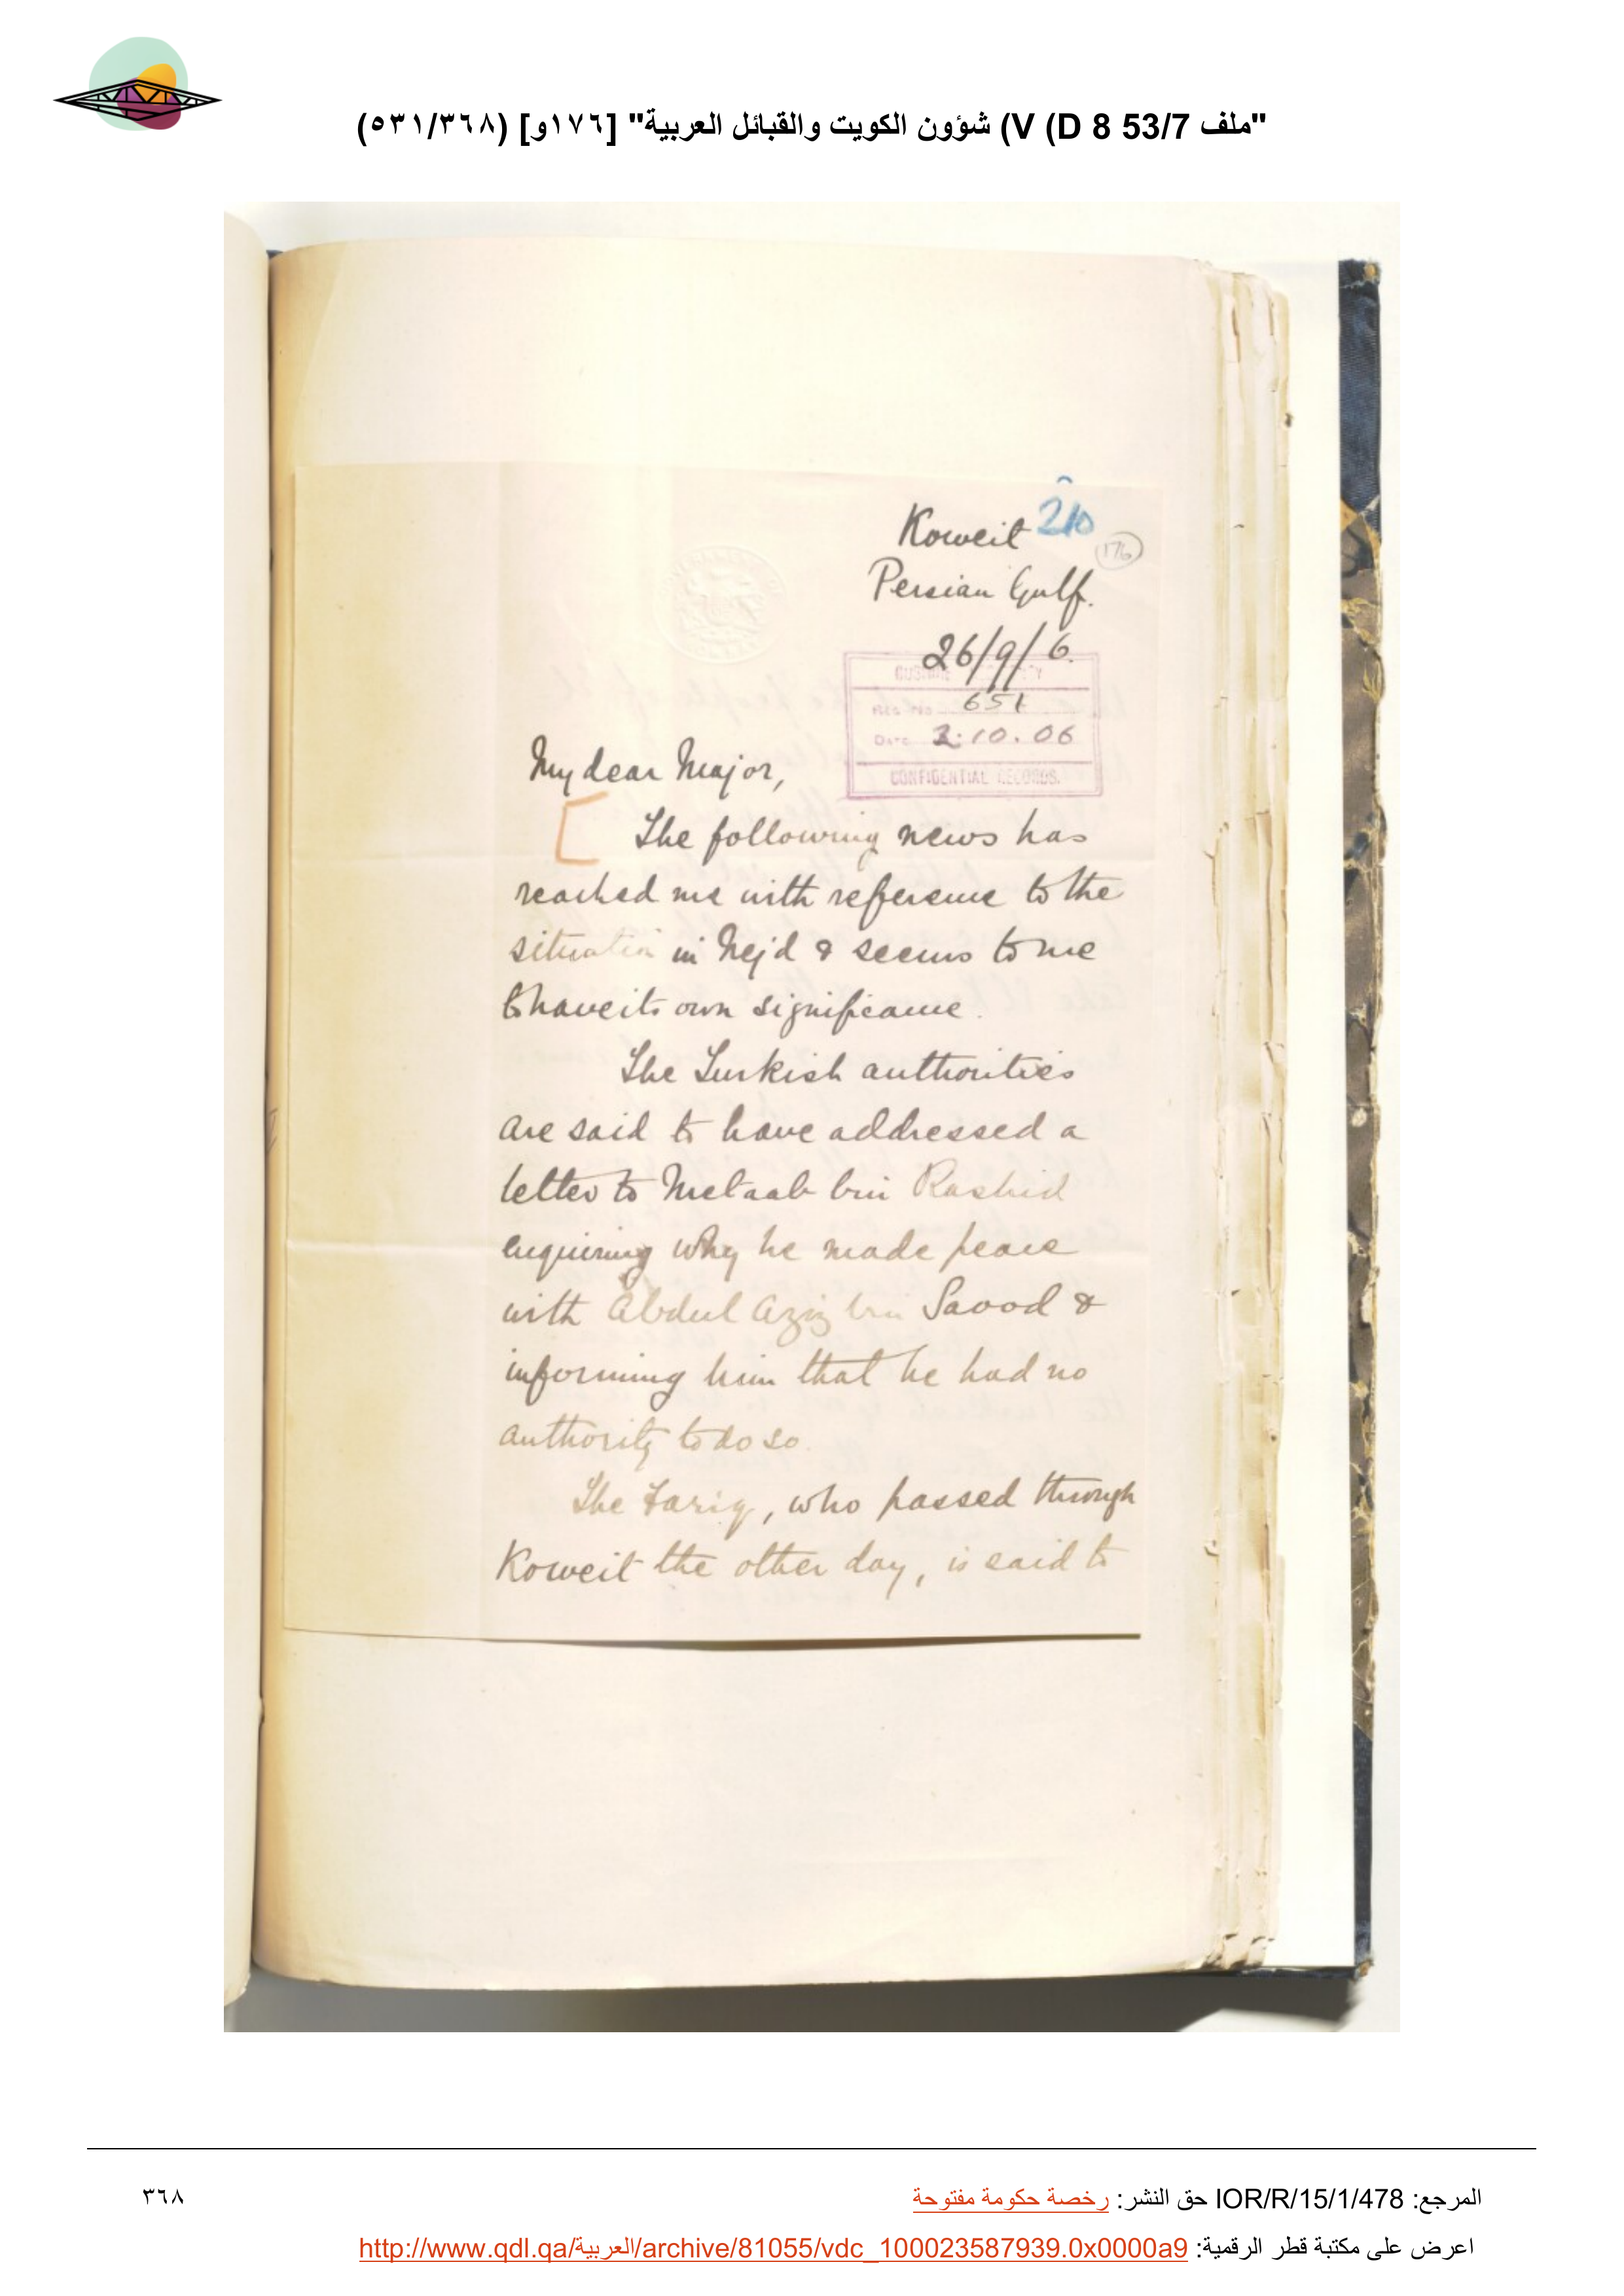 "ملف 53/7 V (D 8) شؤون الكويت والقبائل العربية" [١٧٦و] (٥٣١/٣٦٨)
Koweit 210
176
Persian Gulf.
26/9/6.
REG. No. 651
Date 2.10.06
CONFIDENTIAL RECORDS.
My dear Major,
[ The following news has
reached me with reference to the
situation in Nejd & seems to me
to have its own significance.
The Turkish authorities
are said to have addressed a
letter to Metaab bin Rashid
enquiring why he made peace
with Abdul Aziz bin Saood &
informing him that he had no
authority to do so.
The Fariq, who passed through
Koweit the other day, is said to
المرجع: IOR/R/15/1/478 حق النشر: رخصة حكومة مفتوحة
٣٦٨
اعرض على مكتبة قطر الرقمية: http://www.qdl.qa/العربية/archive/81055/vdc_100023587939.0x0000a9